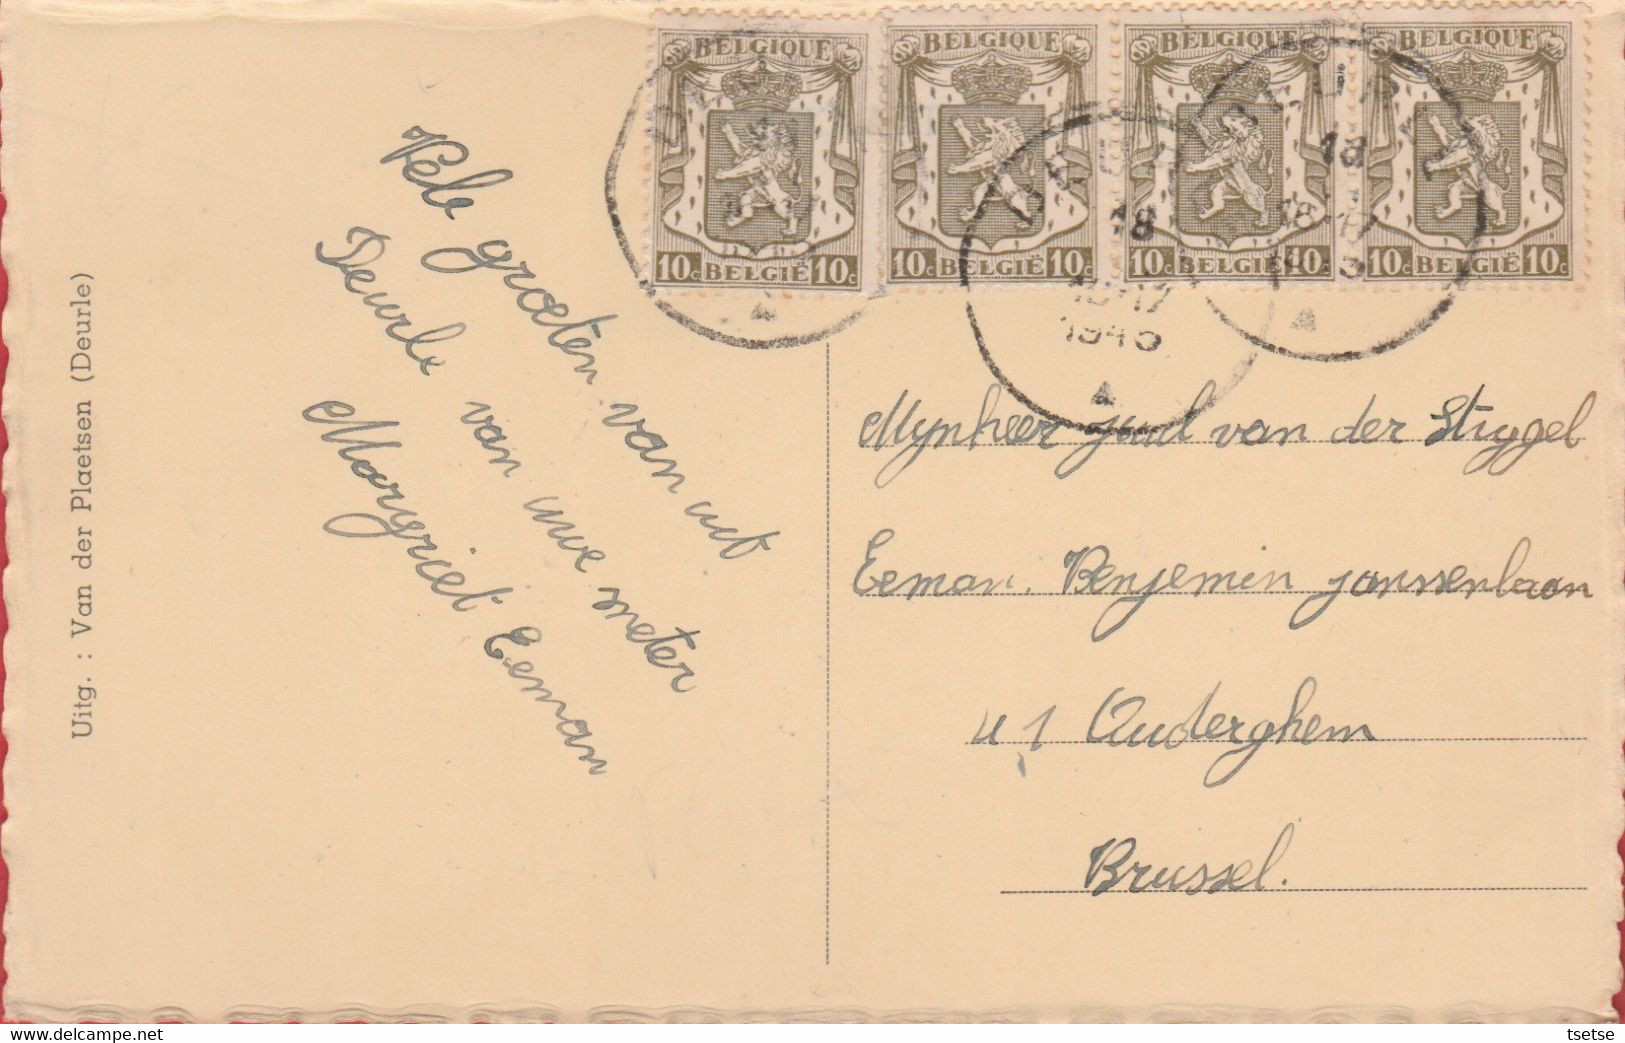 BELGIQUE
10c BELGIË 10c
BELGIQUE
10c BELGIË 10c
BELGIQUE
10c BELGIË 10c
BELGIQUE
10c BELGIË 10c
DEURLE
18
1945
Vele groeten van uit
Deurle van uwe meter
Margriet Eeman
Mynheer van der Stiggel
Eeman. Benjemin janssenlaan
41 Ouderghem
Brussel.
Uitg. : Van der Plaetsen (Deurle)
tsetse